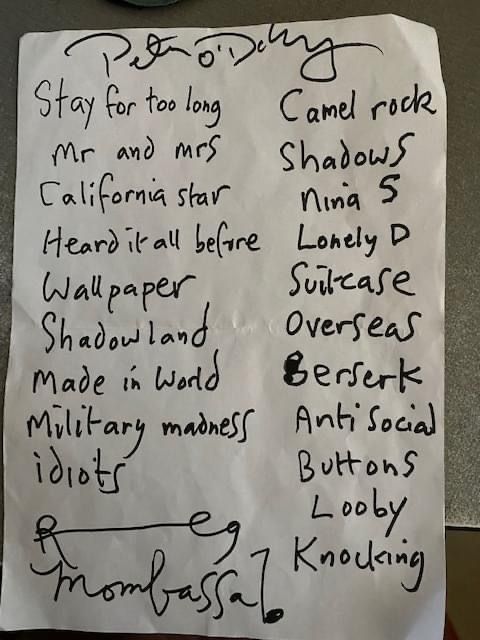 Peter O'Doherty
Stay for too long
Mr and mrs
California star
Heard it all before
Wallpaper
Shadowland
Made in World
Military madness
idiots
Reg
Mombassa
Camel rock
Shadows
Nina S
Lonely D
Suitcase
Overseas
Berserk
Anti Social
Buttons
Looby
Knocking